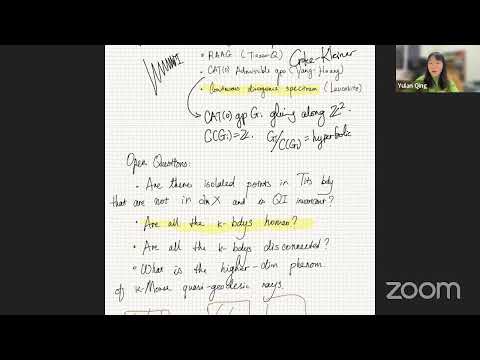 • RAAG (Tiozzo-Q) Croke-Kleiner
• CAT(0) Admissible gps (Yang-Hoang)
• Continuous divergence spectrum (Levcovitz)
CAT(0) gp Gi gluing along Z².
C(Gi)=Z. Gi/C(Gi) = hyperbolic
Open Questions:
• Are there isolated points in Tits bdy
that are not in ∂κX and is QI invariant?
• Are all the κ-bdys homeo?
• Are all the κ-bdys disconnected?
• What is the higher-dim phenom
of κ-Morse quasi-geodesic rays.
Yulan Qing
zoom